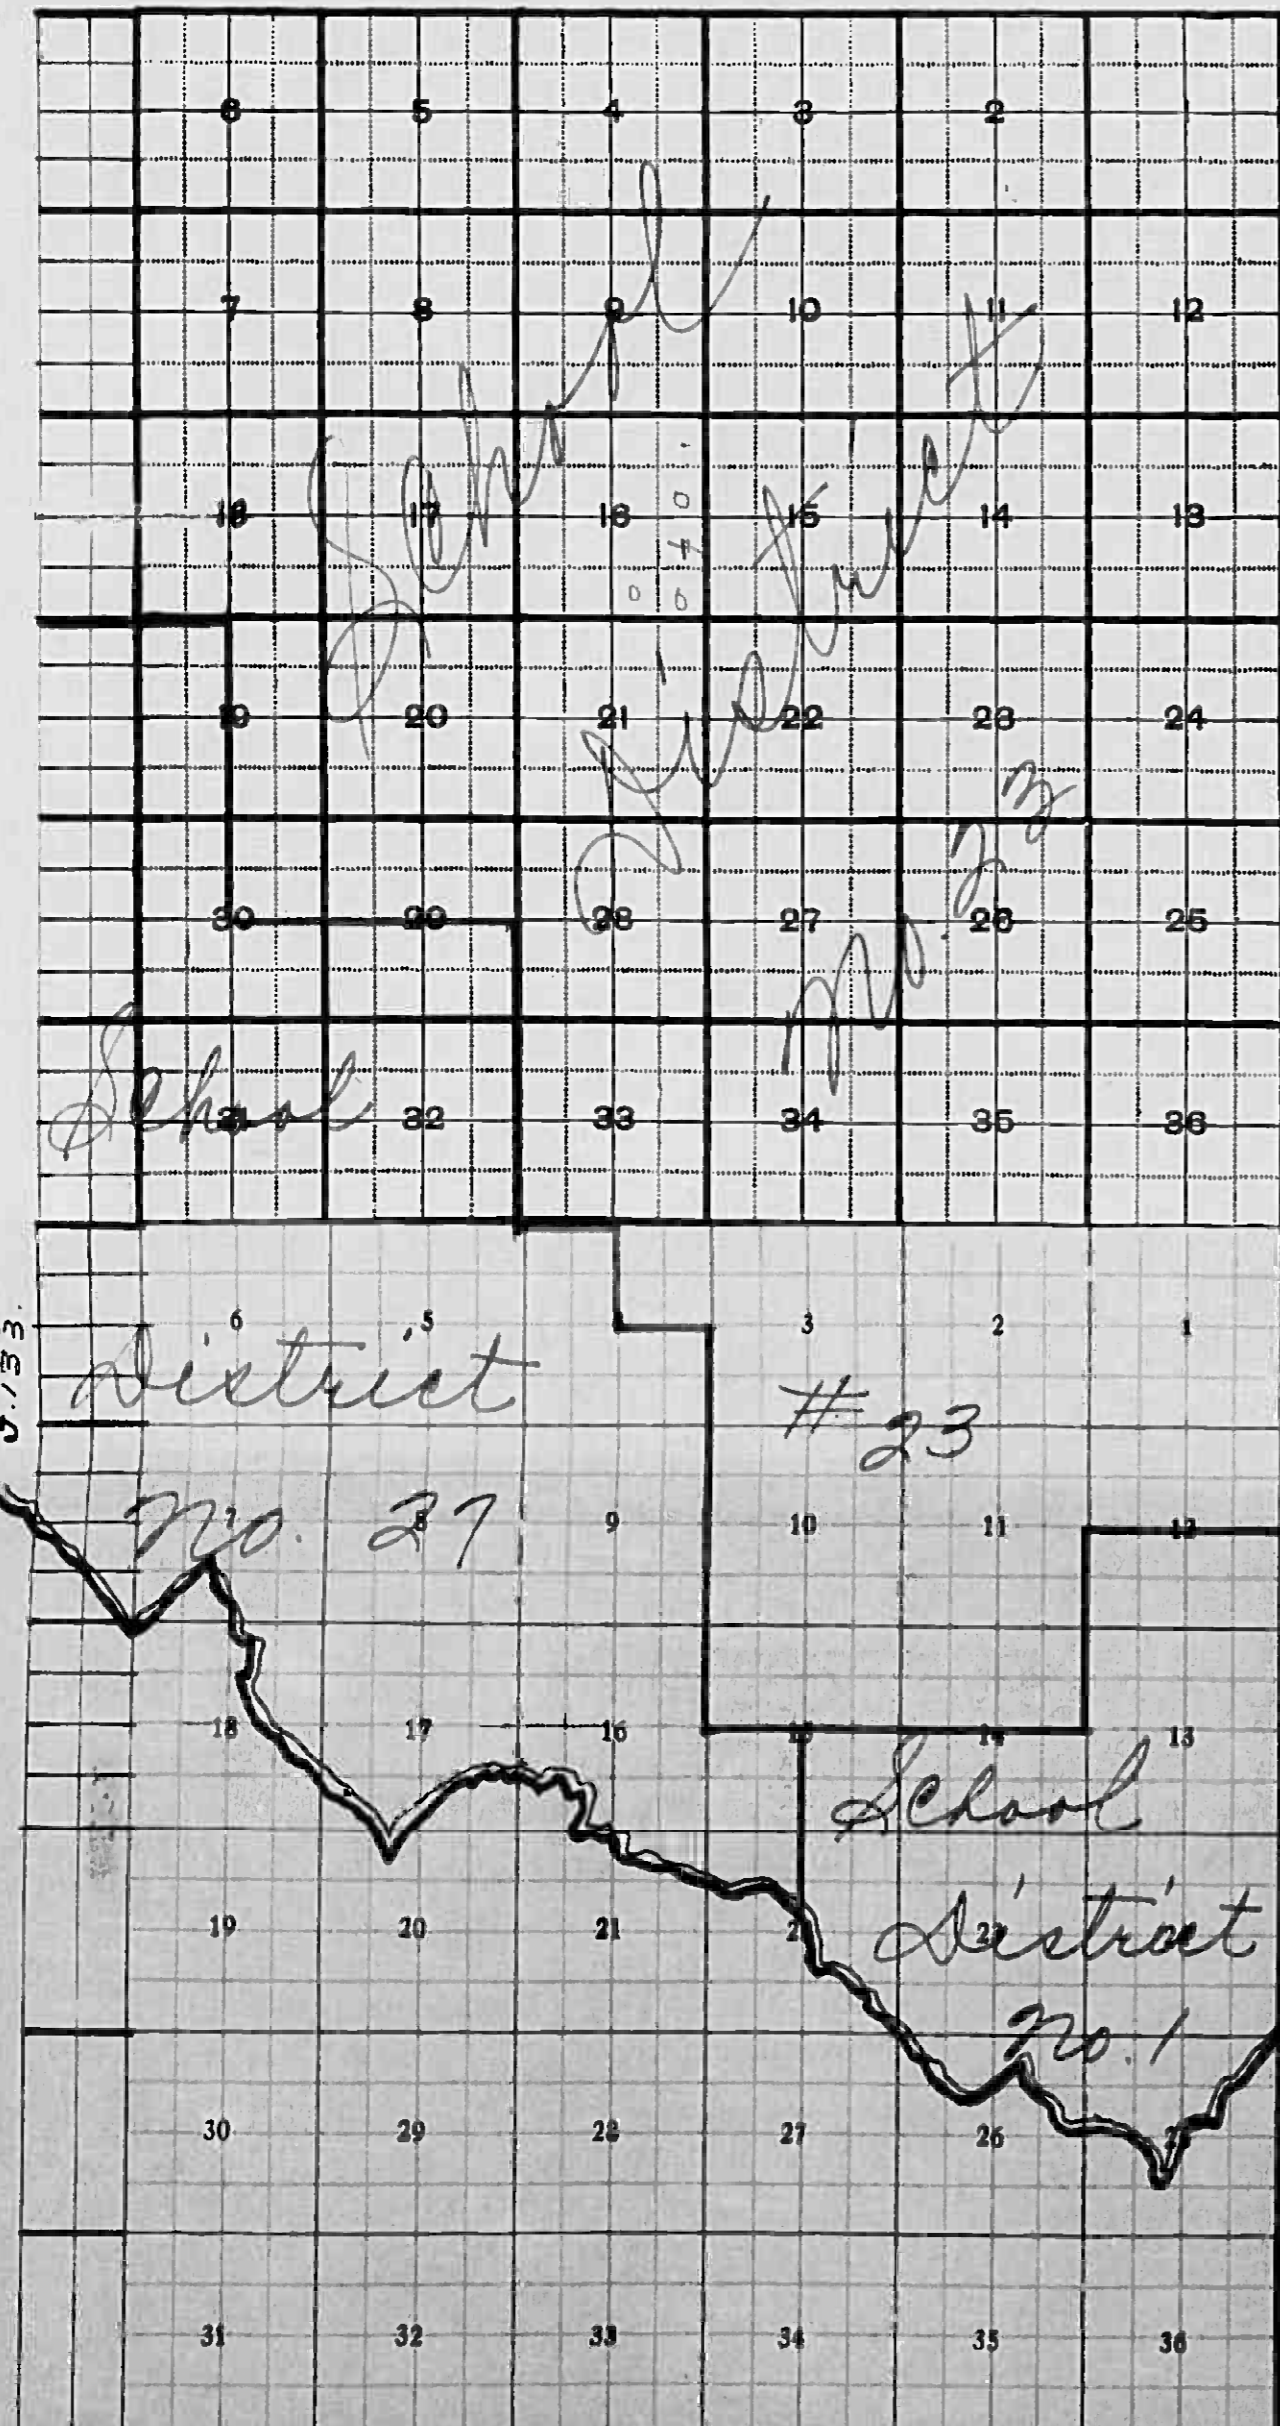 6 5 4 3 2 1
7 8 9 10 11 12
18 17 16 15 14 13
19 20 21 22 23 24
30 29 28 27 26 25
31 32 33 34 35 36
School
District
No. 23
School
District
No. 27
6 5 3 2 1
# 23
7 8 9 10 11 12
18 17 16 15 14 13
School
District
No. 1
19 20 21
30 29 28 27 26
31 32 33 34 35 36